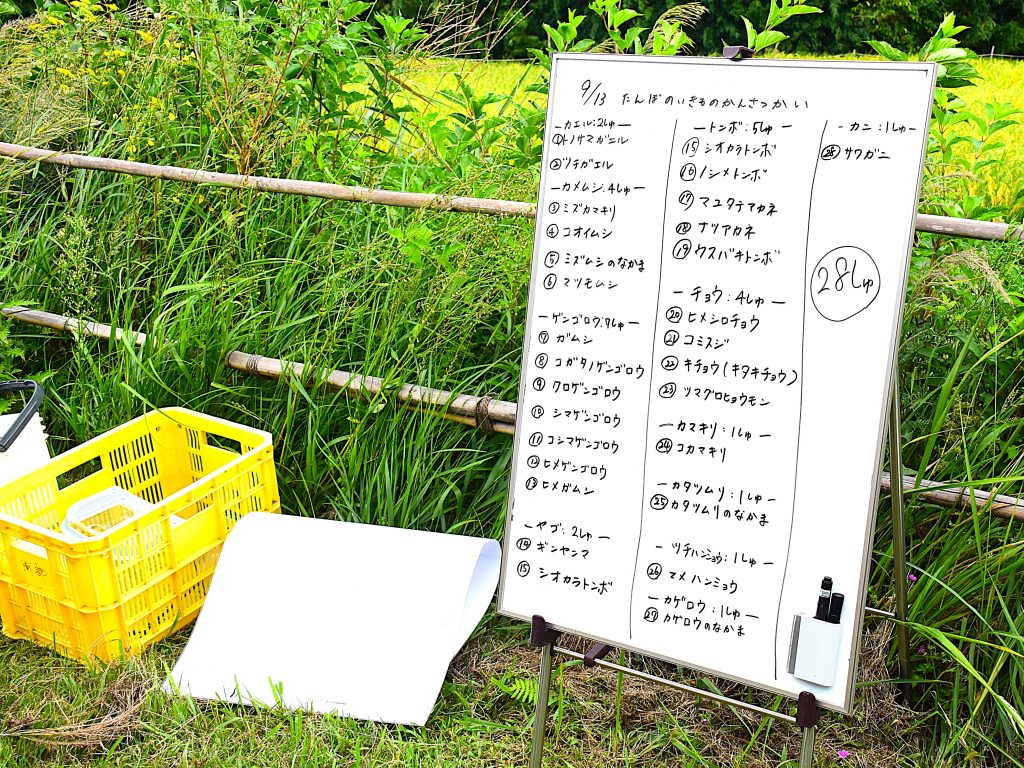 9/13 たんぼのいきものかんさつかい
ーカエル:2しゅー
①トノサマガエル
②ツチガエル
ーカメムシ:4しゅー
③ミズカマキリ
④コオイムシ
⑤ミズムシのなかま
⑥マツモムシ
ーゲンゴロウ:7しゅー
⑦ガムシ
⑧コガタノゲンゴロウ
⑨クロゲンゴロウ
⑩シマゲンゴロウ
⑪コシマゲンゴロウ
⑫ヒメゲンゴロウ
⑬ヒメガムシ
ーヤゴ:2しゅー
⑭ギンヤンマ
⑮シオカラトンボ
ートンボ:5しゅー
⑮シオカラトンボ
⑯ノシメトンボ
⑰マユタテアカネ
⑱ナツアカネ
⑲ウスバキトンボ
ーチョウ:4しゅー
⑳ヒメシロチョウ
㉑コミスジ
㉒キチョウ(キタキチョウ)
㉓ツマグロヒョウモン
ーカマキリ:1しゅー
㉔コカマキリ
ーカタツムリ:1しゅー
㉕カタツムリのなかま
ーツチハンミョウ:1しゅー
㉖マメハンミョウ
ーカゲロウ:1しゅー
㉗カゲロウのなかま
ーカニ:1しゅー
㉘サワガニ
28しゅ